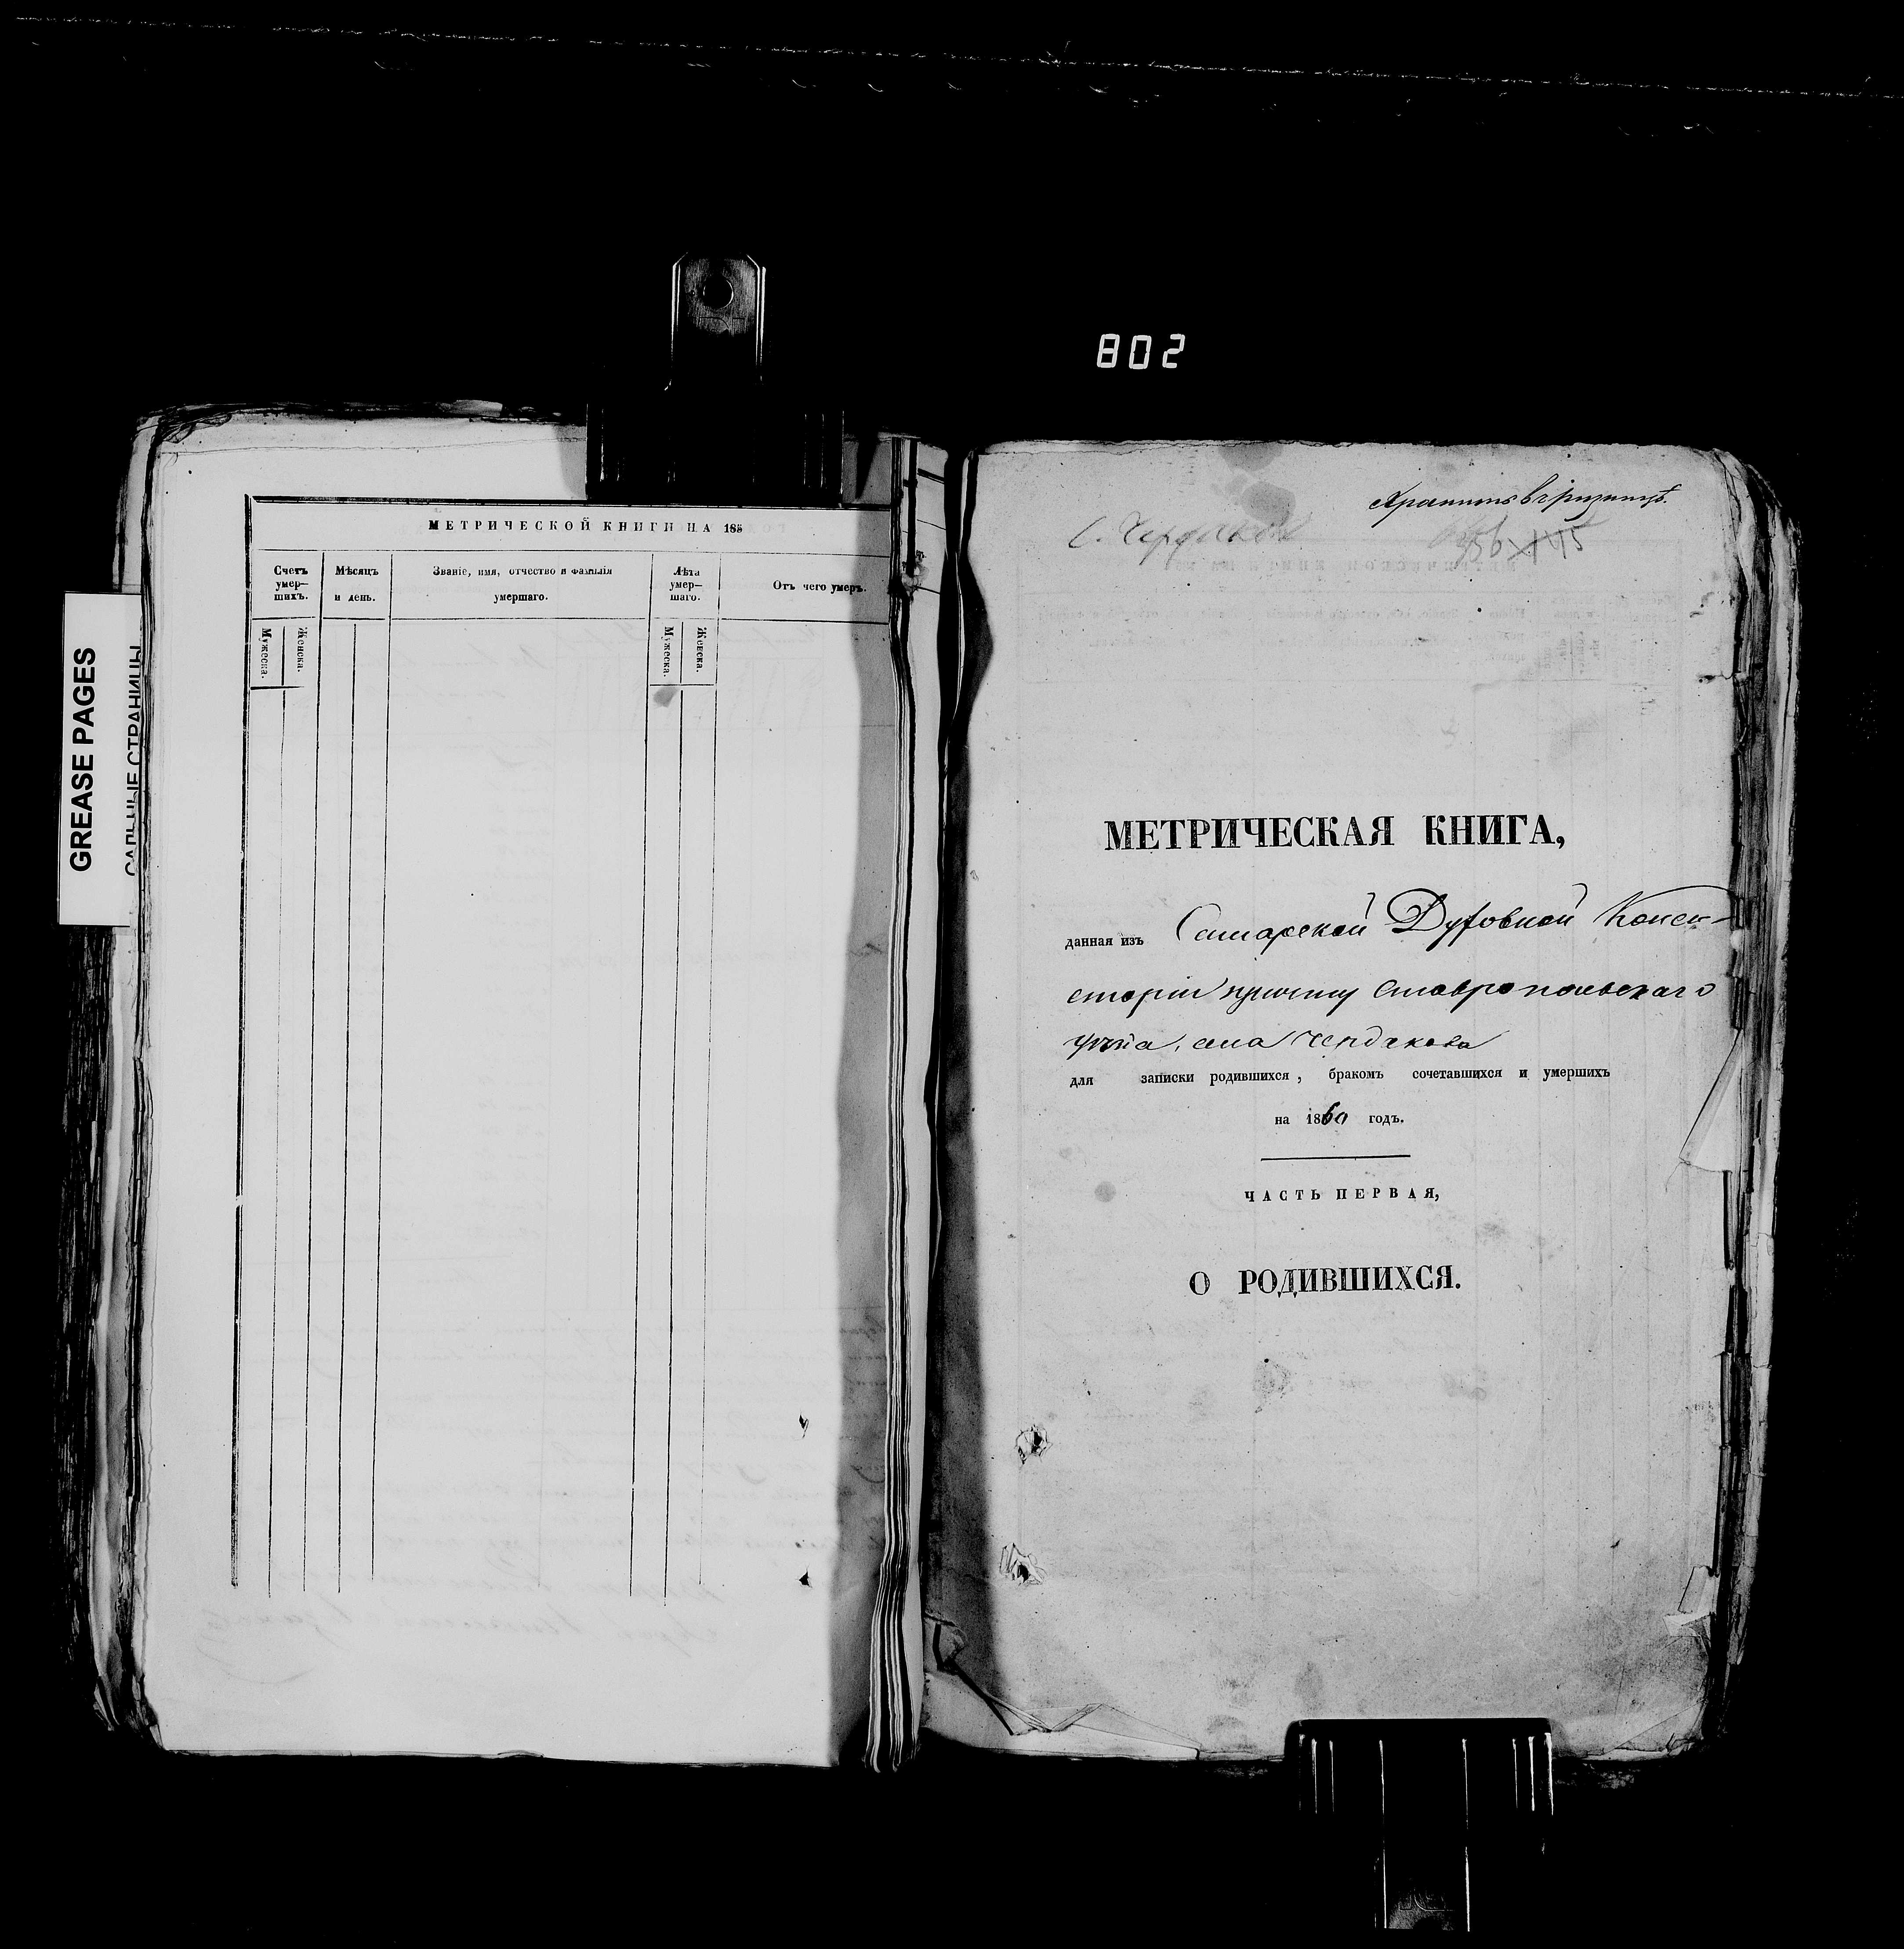 802
GREASE PAGES
САЛЬНЫЕ СТРАНИЦЫ
МЕТРИЧЕСКОЙ КНИГИ НА 185
Счетъ умер—шихъ.
Мужеска.
Женска.
Мѣсяцъ и день.
Званіе, имя, отчество и фамилія умершаго.
Лѣта умер—шаго.
Мужеска.
Женска.
Отъ чего умеръ.
С.
МЕТРИЧЕСКАЯ КНИГА,
данная изъ Самарской Духовной Конси-
сторіи причту Ставропольскаго
уѣзда, села Чердакова
для записки родившихся, бракомъ сочетавшихся и умершихъ
на 1860 годъ.
ЧАСТЬ ПЕРВАЯ,
О РОДИВШИХСЯ.